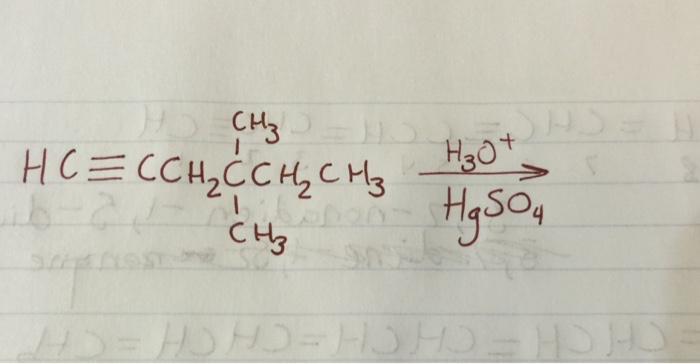 CH₃
HC≡CCH₂CCH₂CH₃ H₃O⁺
HgSO₄
CH₃